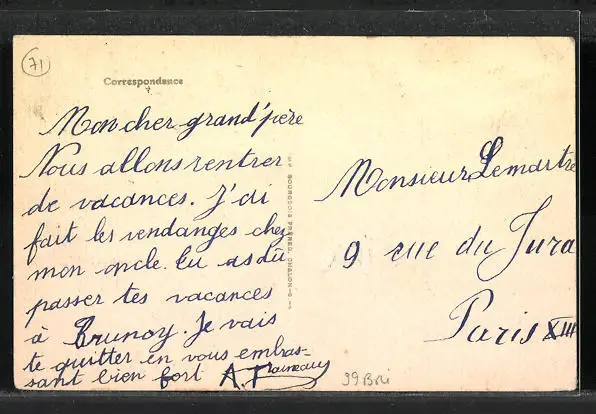 71
Correspondance
Mon cher grand'père
Nous allons rentrer
de vacances. J'ai
fait les vendanges chez
mon oncle. Tu as dû
passer tes vacances
à Brunoy. Je vais
te quitter en vous embras-
sant bien fort A.
BOURGEOIS FRÈRES, CHALON-S-
Monsieur Lemartre
9 rue du Jura
Paris XIII